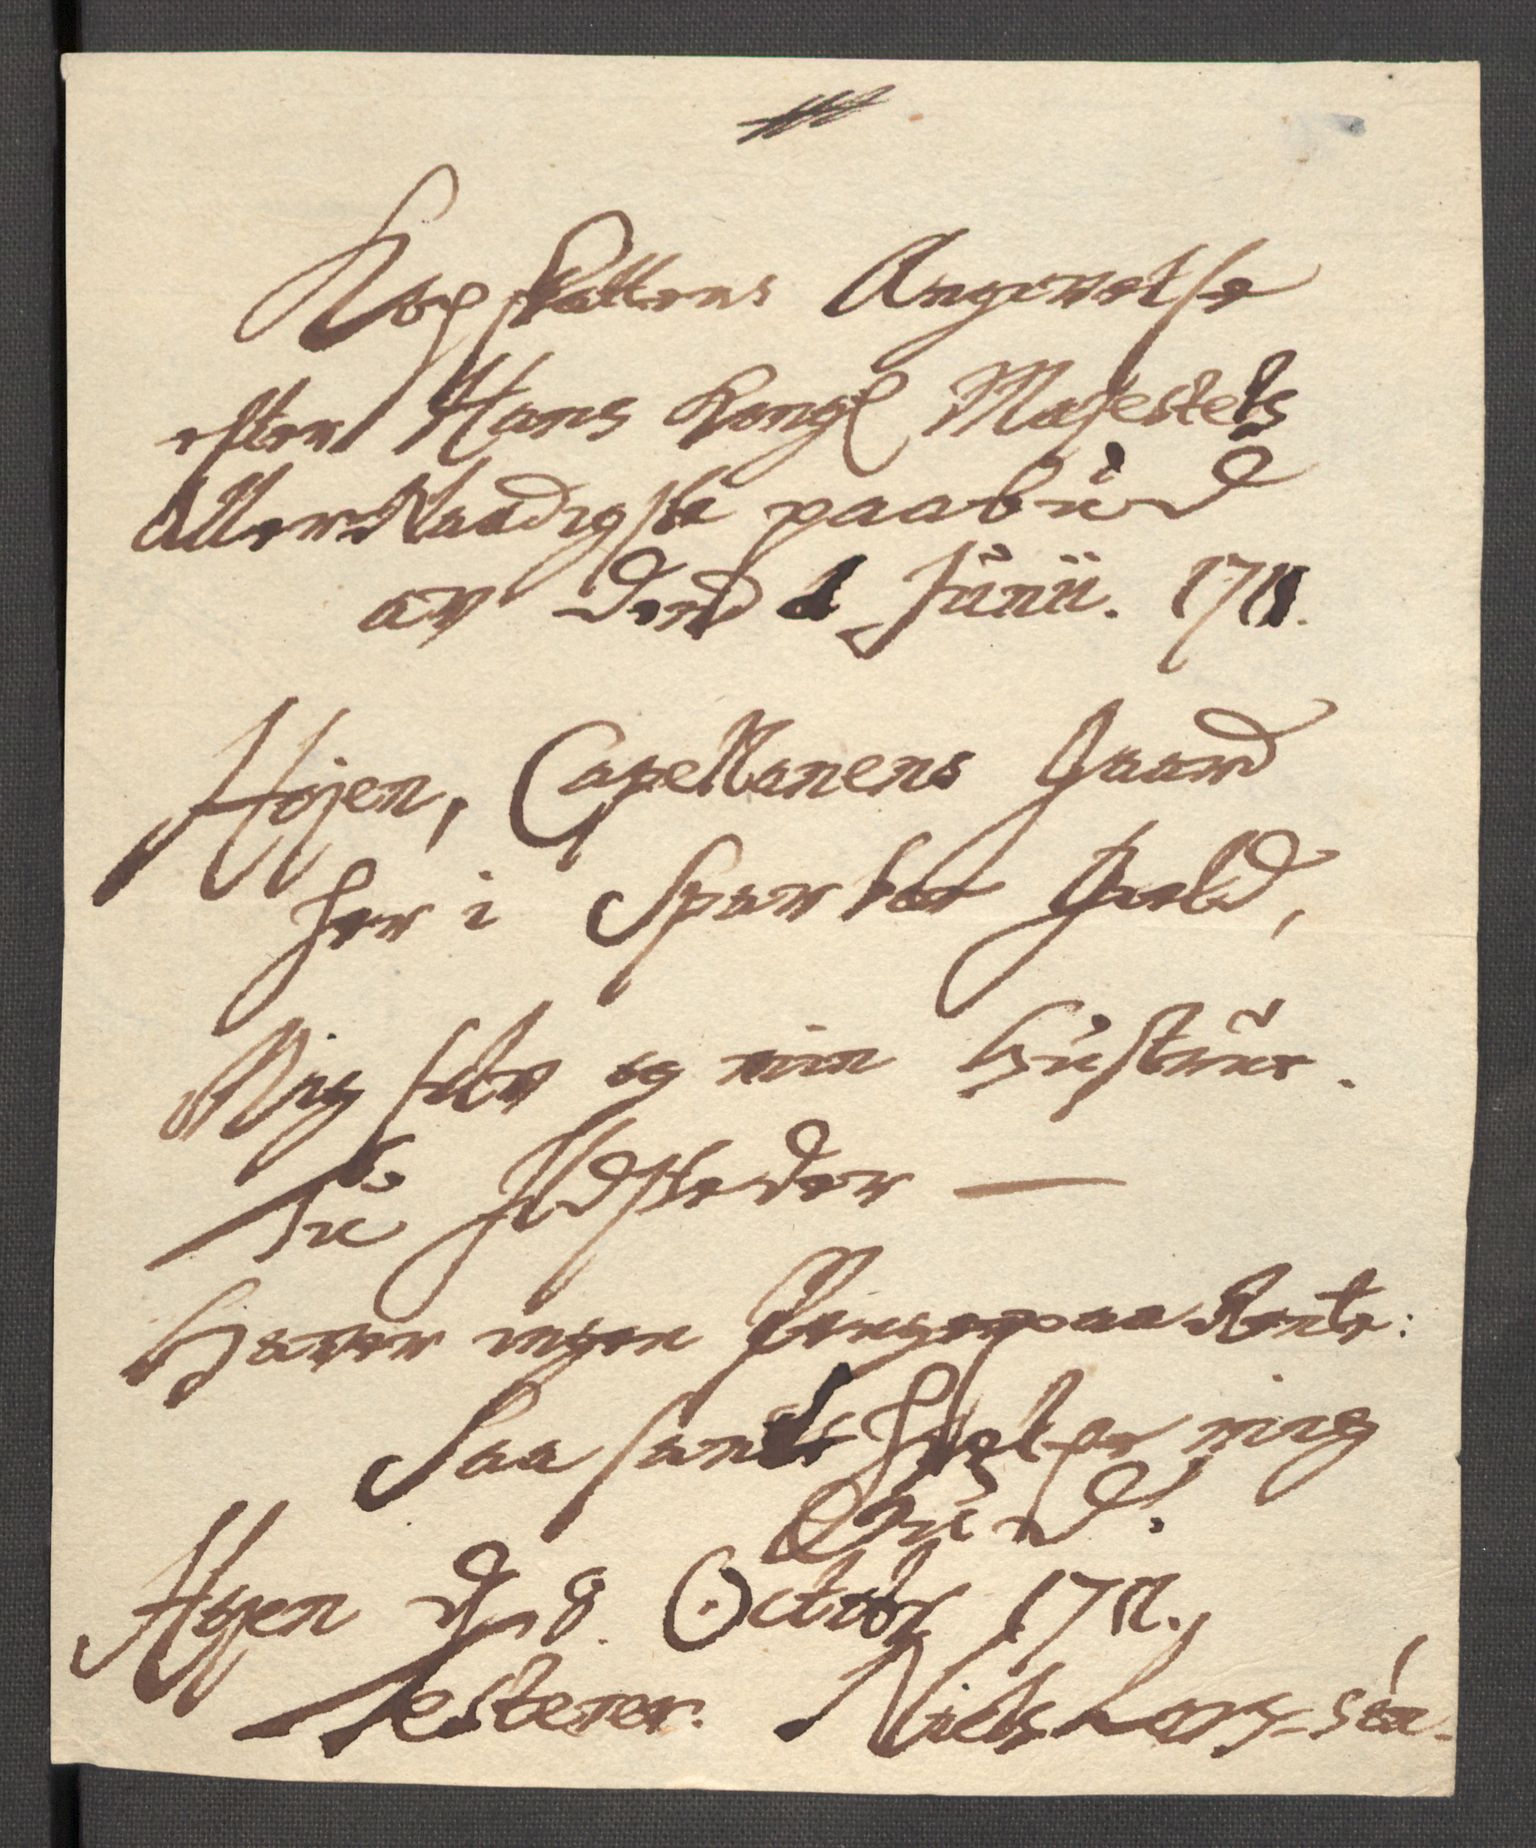 Kopskattens Angivelse
efter Hans Kongl Majestets
AllerNaadigste paabud
av Dend 1 Junii. 1711.
Højen, Capellanens Gaard
her i Sparboe Gield,
Mig selv og min hustrue.
Tu Ildsteder —
Haver ingen Penge paa Rente:
Saa sandt hielpe mig
Gud!
Højen d. 8. Octobr 1711.
Testerer. Niels Lars-sén.